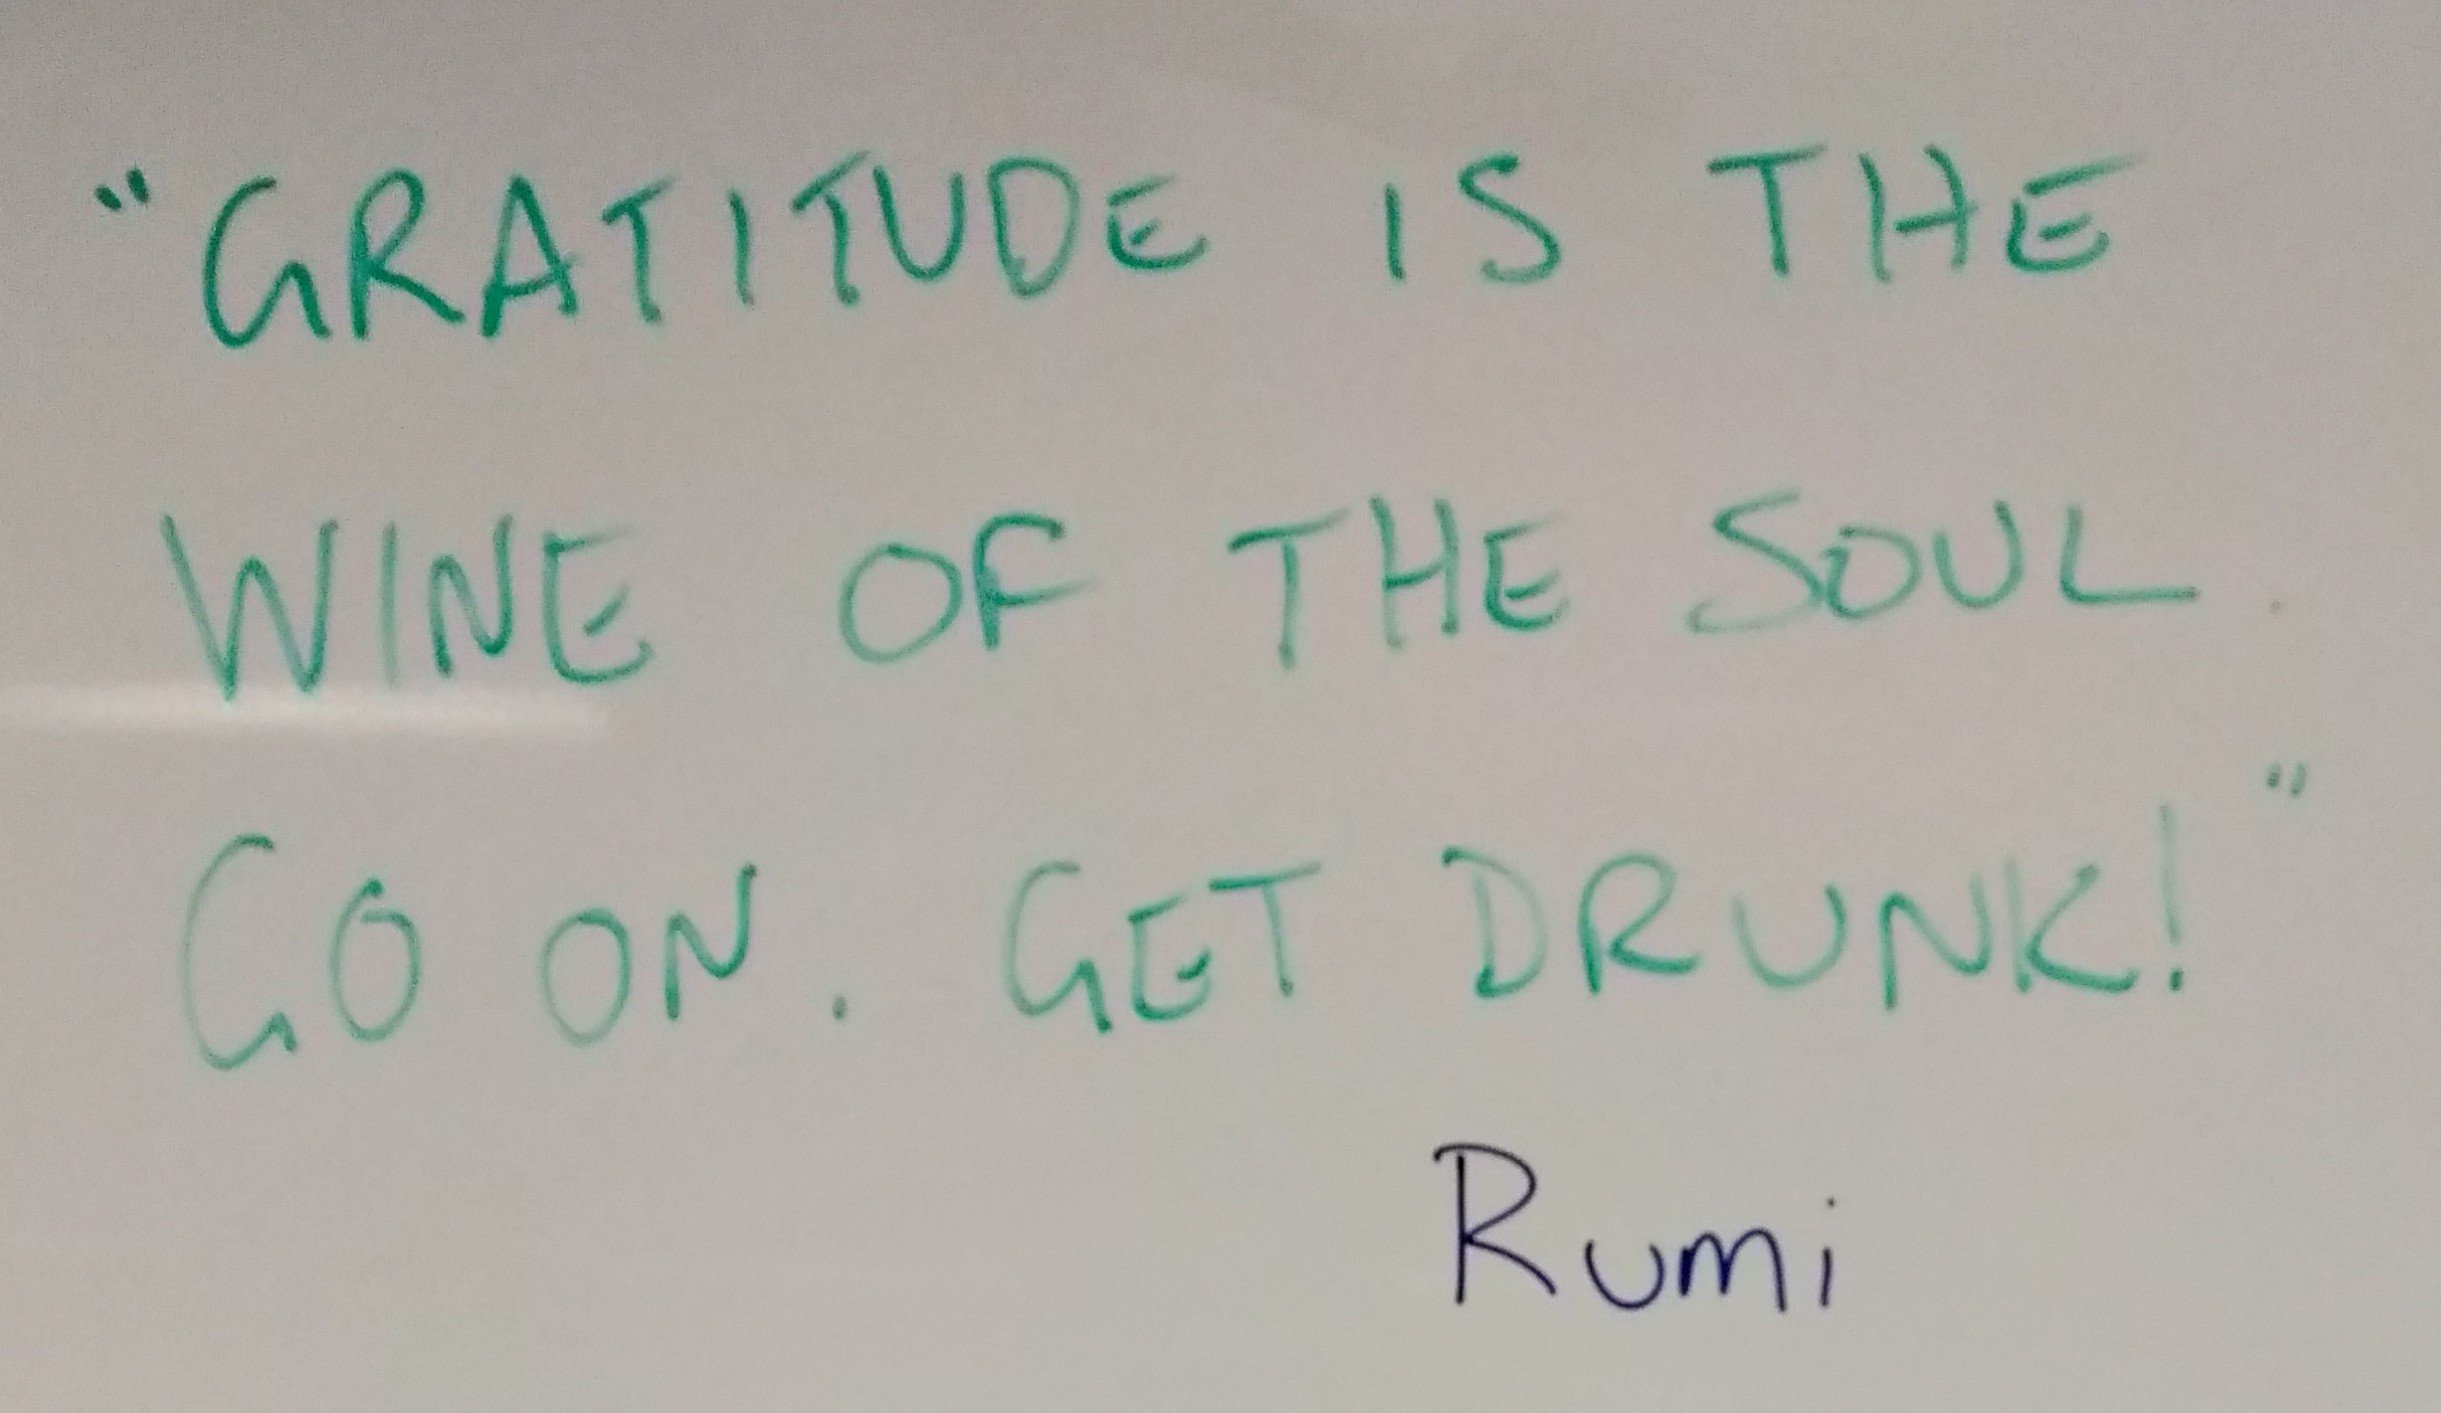 "GRATITUDE IS THE
WINE OF THE SOUL.
GO ON. GET DRUNK!"
Rumi